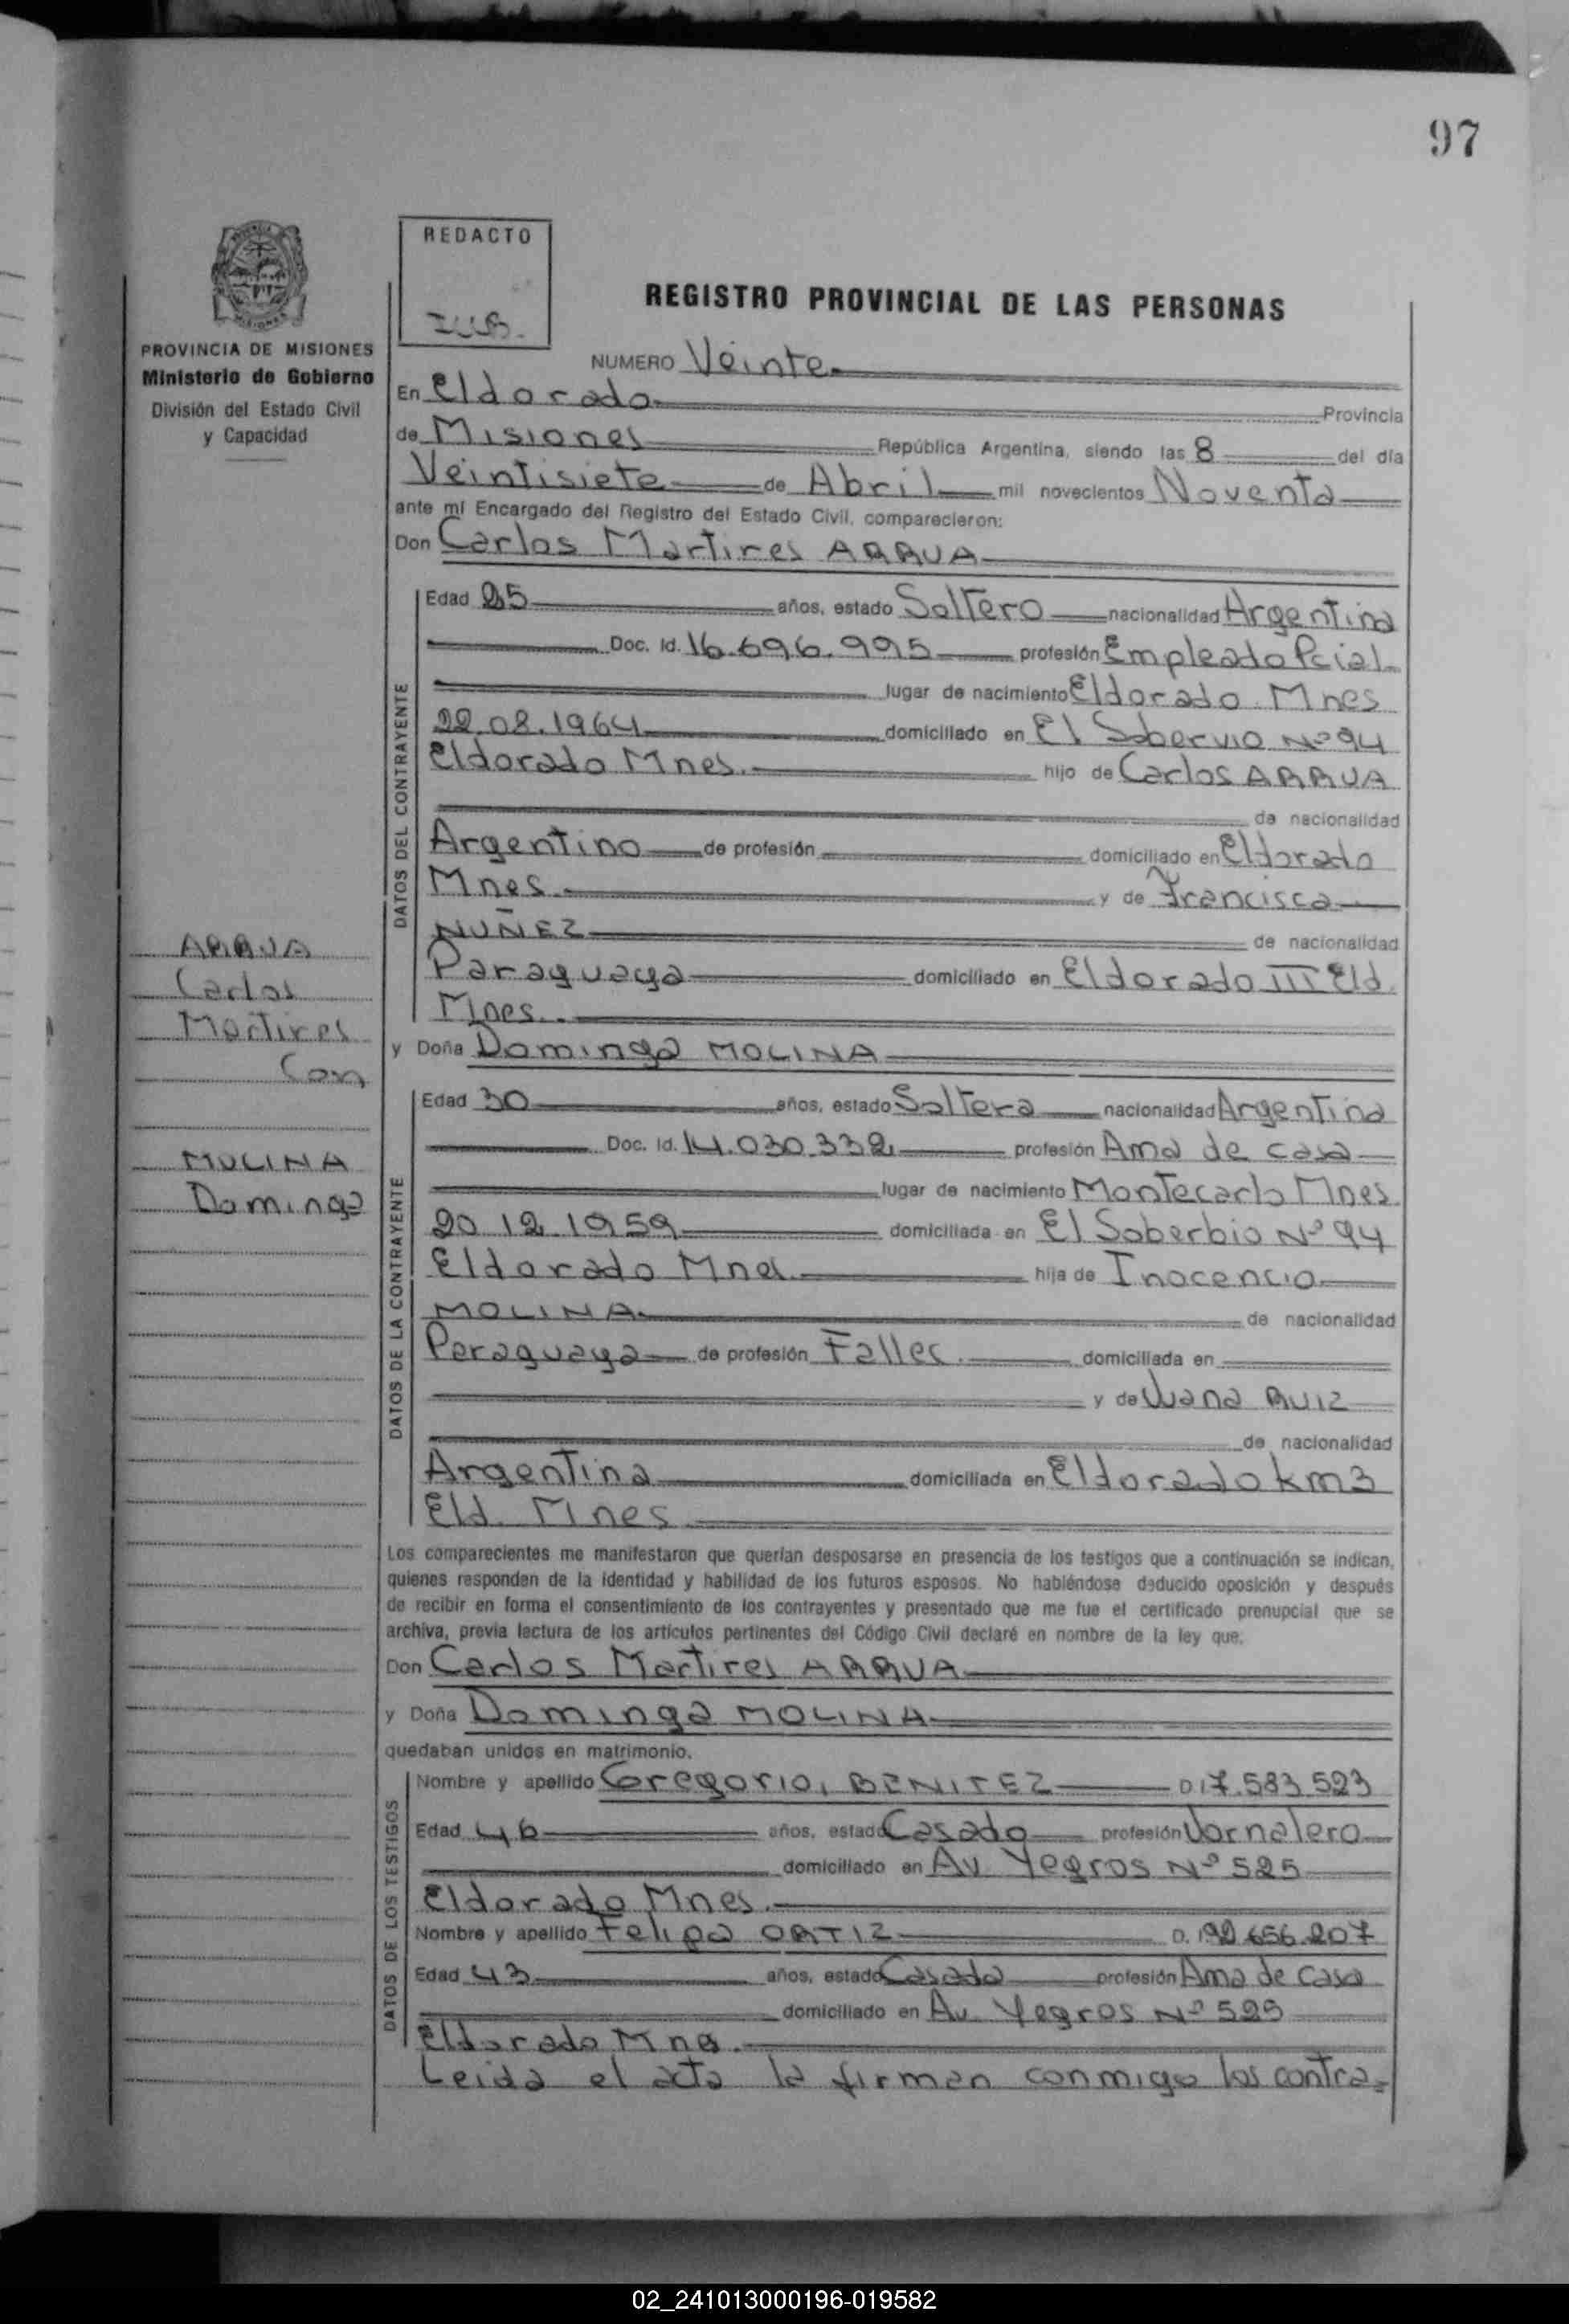 97
REDACTO
REGISTRO PROVINCIAL DE LAS PERSONAS
PROVINCIA DE MISIONES
Ministerio de Gobierno
División del Estado Civil
y Capacidad
NUMERO Veinte
En Eldorado Provincia
de Misiones República Argentina, siendo las 8 del día
Veintisiete de Abril mil novecientos Noventa
ante mí Encargado del Registro del Estado Civil, comparecieron:
Don Carlos Martires ARRUA
DATOS DEL CONTRAYENTE
Edad 25 años, estado Soltero nacionalidad Argentina
Doc. Id. 16.696.995 profesión Empleado Pcial
lugar de nacimiento Eldorado Mnes
22.08.1964 domiciliado en El Sobervio Nº 94
Eldorado Mnes. hijo de Carlos ARRUA
de nacionalidad
Argentino de profesión domiciliado en Eldorado
Mnes. y de Francisca
NUÑEZ de nacionalidad
Paraguaya domiciliado en Eldorado III Eld.
Mnes.
ARRUA
Carlos
Martires
Con
MOLINA
Dominga
y Doña Dominga MOLINA
DATOS DE LA CONTRAYENTE
Edad 30 años, estado Soltera nacionalidad Argentina
Doc. Id. 14.030.332 profesión Ama de casa
lugar de nacimiento Montecarlo Mnes
20.12.1959 domiciliada en El Soberbio Nº 94
Eldorado Mnes. hija de Inocencio
MOLINA de nacionalidad
Paraguaya de profesión Fallec. domiciliada en
y de Juana RUIZ
de nacionalidad
Argentina domiciliada en Eldorado km3
Eld. Mnes
Los comparecientes me manifestaron que querían desposarse en presencia de los testigos que a continuación se indican,
quienes responden de la identidad y habilidad de los futuros esposos. No habiéndose deducido oposición y después
de recibir en forma el consentimiento de los contrayentes y presentado que me fue el certificado prenupcial que se
archiva, previa lectura de los artículos pertinentes del Código Civil declaré en nombre de la ley que:
Don Carlos Martires ARRUA
y Doña Dominga MOLINA
quedaban unidos en matrimonio.
DATOS DE LOS TESTIGOS
Nombre y apellido Gregorio, BENITEZ D.I 7.583.523
Edad 46 años, estado Casado profesión Jornalero
domiciliado en Av. Yegros Nº 525
Eldorado Mnes.
Nombre y apellido Felipa ORTIZ D. I 92.656.207
Edad 43 años, estado Casada profesión Ama de casa
domiciliado en Av. Yegros Nº 525
Eldorado Mnes.
Leida el acta la firman conmigo los contra=
02_241013000196-019582